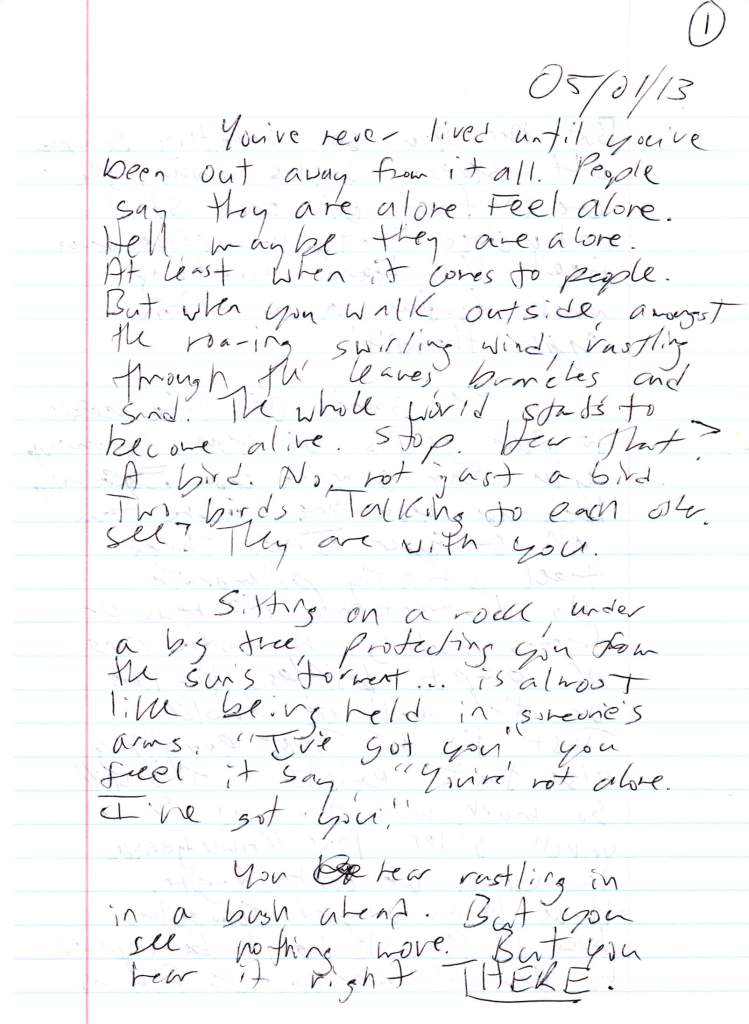 1
05/01/13
You've never lived until you've
been out away from it all. People
say they are alone. Feel alone.
Hell maybe they are alone.
At least when it comes to people.
But when you walk outside, amongst
the roaring swirling wind, rustling
through the leaves, branches and
sand. The whole world starts to
become alive. Stop. Hear that?
A bird. No, not just a bird.
Two birds. Talking to each other.
See? They are with you.
Sitting on a rock, under
a big tree, protecting you from
the sun's torment... is almost
like being held in someone's
arms. "I've got you" you
feel it say, "You're not alone.
I've got you."
You hear rustling in
in a bush ahead. But you
see nothing move. But you
hear it right THERE.